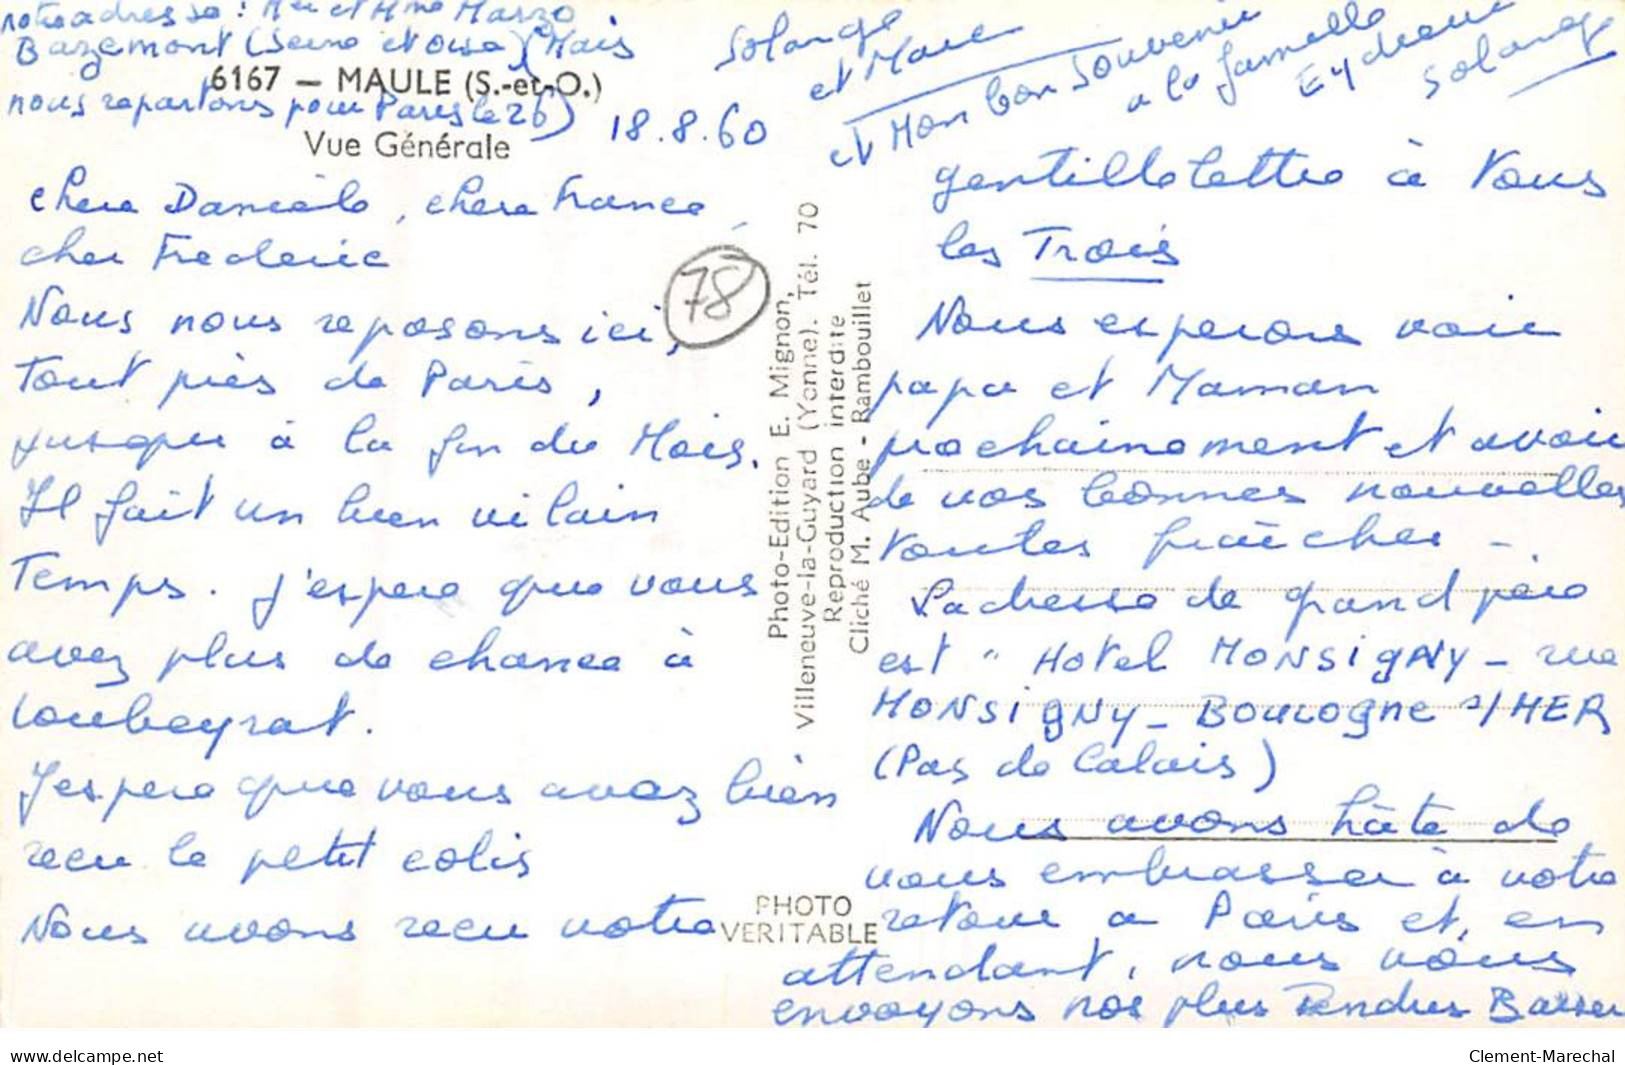 notre adresse : Mr et Mme Marzo
Bazemont (Seine et Oise) (Mais
6167 — MAULE (S.-et-O.)
nous repartons pour Paris le 26)
Vue Générale
18.8.60
chere Danièle, chere France,
cher Frederic
Nous nous reposons ici,
Tout près de Paris,
jusque à la fin du Mois.
Il fait un bien vilain
Temps. j'espere que vous
avez plus de chance à
Loubeyrat.
J'espere que vous avez bien
recu le petit colis
Nous avons recu votre
78
Photo-Edition E. Mignon,
Villeneuve-la-Guyard (Yonne). Tél. 70
Reproduction interdite
Cliché M. Aube - Rambouillet
PHOTO
VERITABLE
gentille lettre à Vous
les Trois
Nous esperons voir
papa et Maman
prochainement et avoir
de vos bonnes nouvelles
toutes fraîches -.
L'adresse de grand père
est " Hotel MONSIGNY - rue
MONSIGNY - BOULOGNE s/MER
(Pas de Calais)
Nous avons hâte de
vous embrasser à votre
retour a Paris et, en
attendant, nous vous
envoyons nos plus Tendres Baisers
Solange
et Marc
et Mon bon Souvenir
a la famille
Eydieux
Solange
delcampe.net
Clement-Marechal